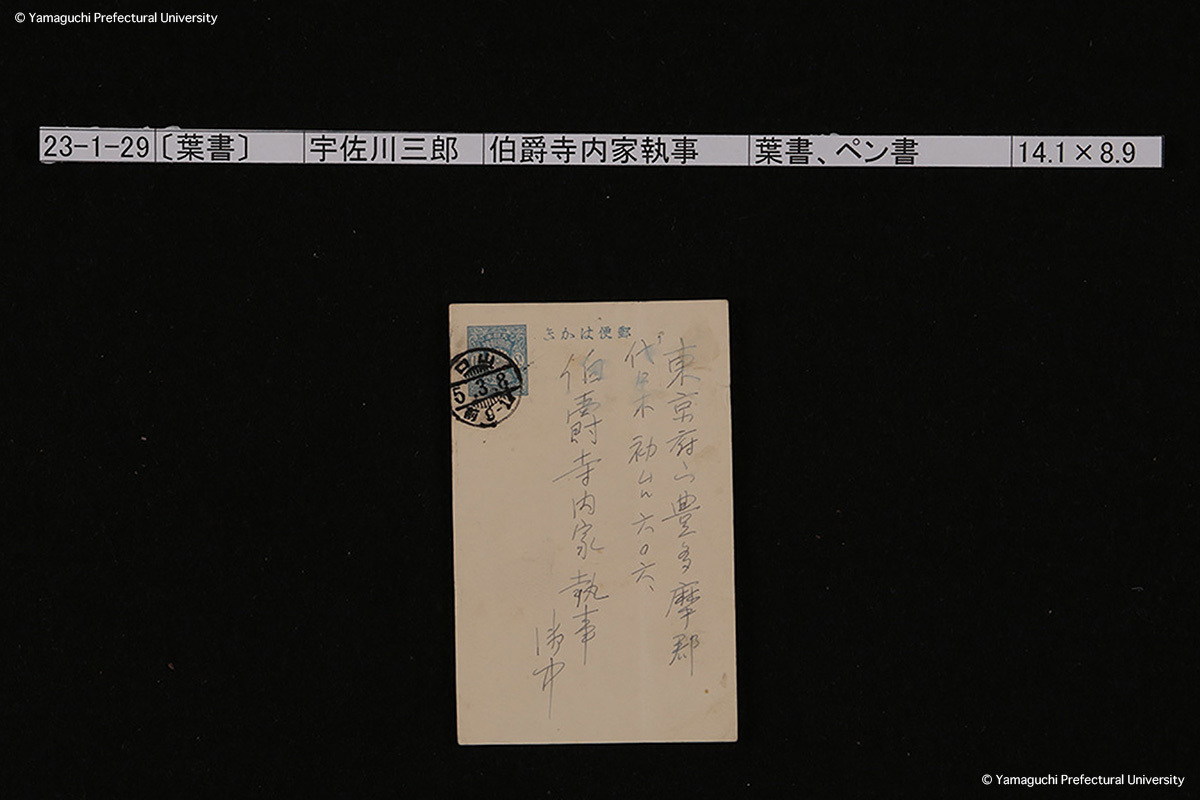 © Yamaguchi Prefectural University
23-1-29 〔葉書〕 宇佐川三郎 伯爵寺内家執事 葉書、ペン書 14.1×8.9
郵便はかき
口山
5.3.8
前9-
東京府下豊多摩郡
代々木初台六〇六、
伯爵寺内家執事
御中
© Yamaguchi Prefectural University